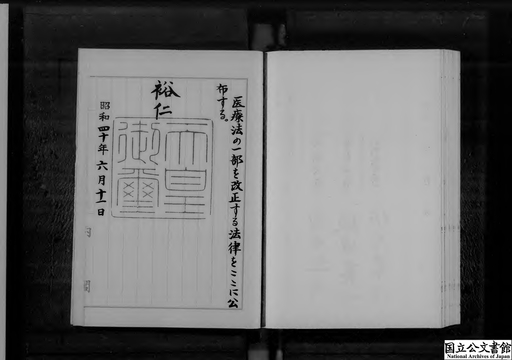 医療法の一部を改正する法律をここに公
布する。
裕仁
天皇
御璽
昭和四十年六月十一日
国立公文書館
National Archives of Japan